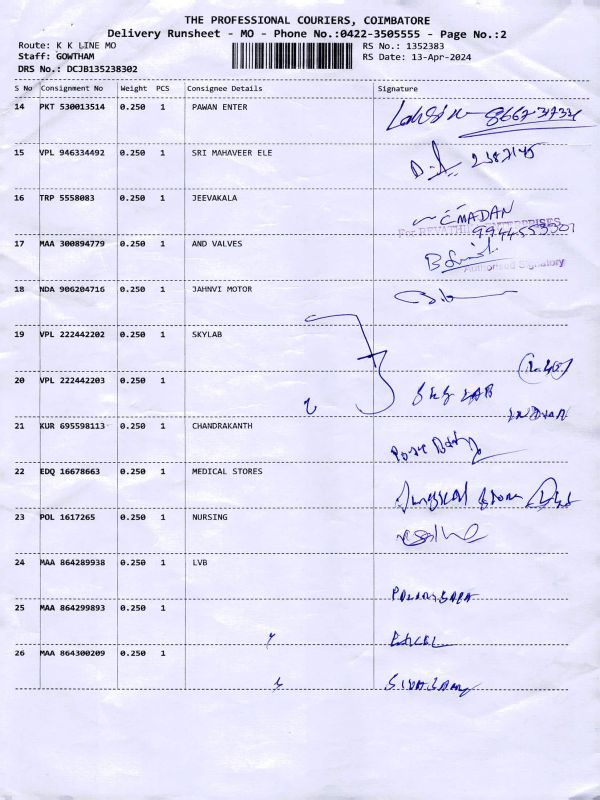 THE PROFESSIONAL COURIERS, COIMBATORE
Delivery Runsheet - MO - Phone No.:0422-3505555 - Page No.:2
Route: K K LINE MO
RS No.: 1352383
Staff: GOWTHAM
RS Date: 13-Apr-2024
DRS No.: DCJB135238302
S No Consignment No Weight PCS Consignee Details Signature
14 PKT 530013514 0.250 1 PAWAN ENTER
15 VPL 946334492 0.250 1 SRI MAHAVEER ELE
16 TRP 5558083 0.250 1 JEEVAKALA
C MADAN
For REVATHI ENTERPRISES
9944553301
17 MAA 300894779 0.250 1 AND VALVES
Authorised Signatory
18 NDA 906204716 0.250 1 JAHNVI MOTOR
19 VPL 222442202 0.250 1 SKYLAB
20 VPL 222442203 0.250 1
SKY LAB
21 KUR 695598113 0.250 1 CHANDRAKANTH
22 EDQ 16678663 0.250 1 MEDICAL STORES
Surgical
23 POL 1617265 0.250 1 NURSING
24 MAA 864289938 0.250 1 LVB
25 MAA 864299893 0.250 1
26 MAA 864300209 0.250 1